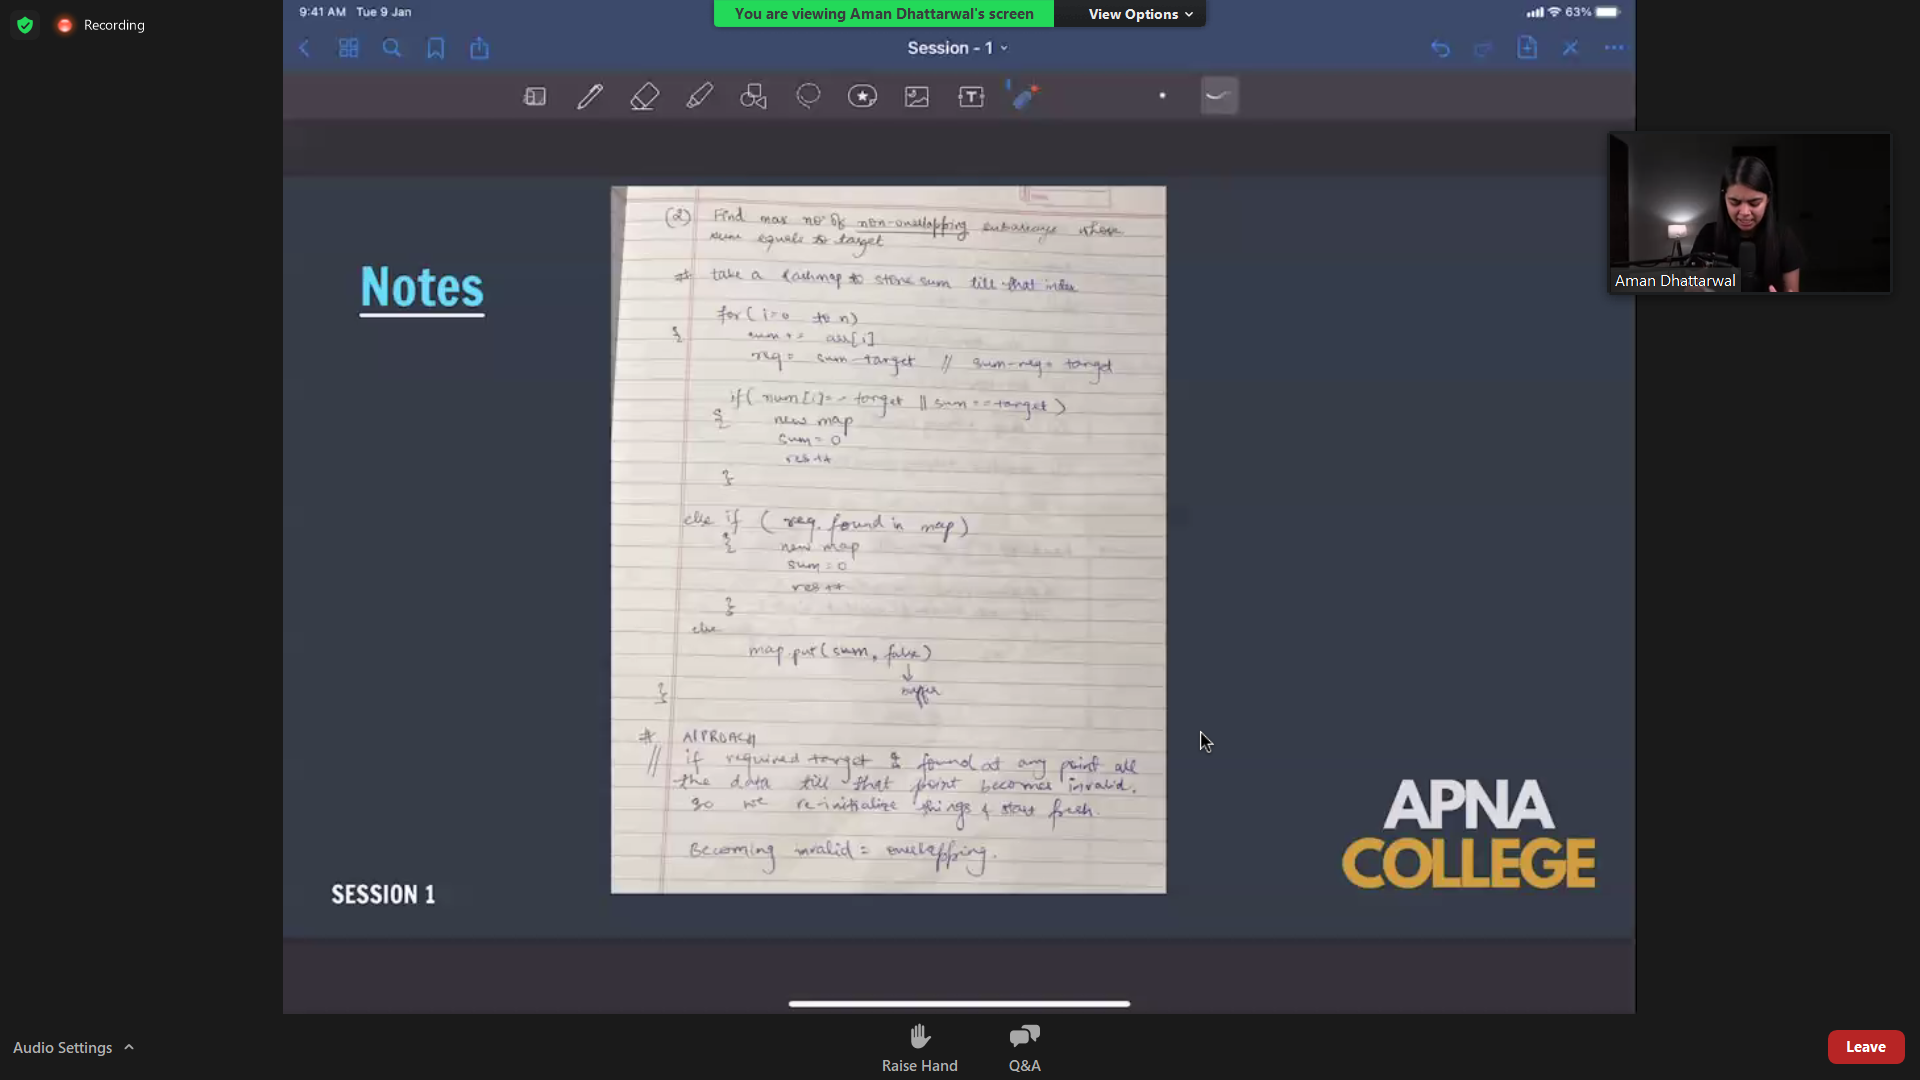 Recording
9:41 AM Tue 9 Jan
You are viewing Aman Dhattarwal's screen
View Options
63%
Session - 1
Notes
(2) Find max no. of non-overlapping subarrays whose
sum equals to target
# take a hashmap to store sum till that index
for( i=0 to n)
{ sum += arr[i]
req = sum-target // sum-req = target
if( num[i]== target || sum == target)
{ new map
sum = 0
res++
}
else if ( req. found in map)
{ new map
sum = 0
res++
}
else
map.put(sum, false)
↓
buffer
}
# APPROACH
// if required target is found at any point all
the data till that point becomes invalid.
so we re-initialize things & start fresh.
Becoming invalid = overlapping.
SESSION 1
APNA
COLLEGE
Aman Dhattarwal
Audio Settings
Raise Hand
Q&A
Leave